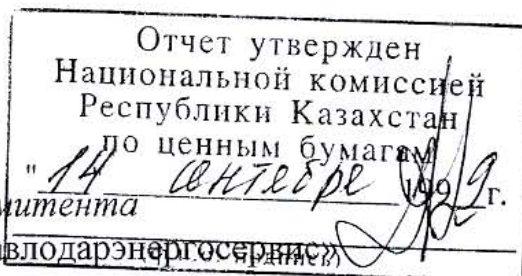 Отчет утвержден
Национальной комиссией
Республики Казахстан
по ценным бумагам
"14 сентября 1999 г.
митента
авлодарэнергосервис»